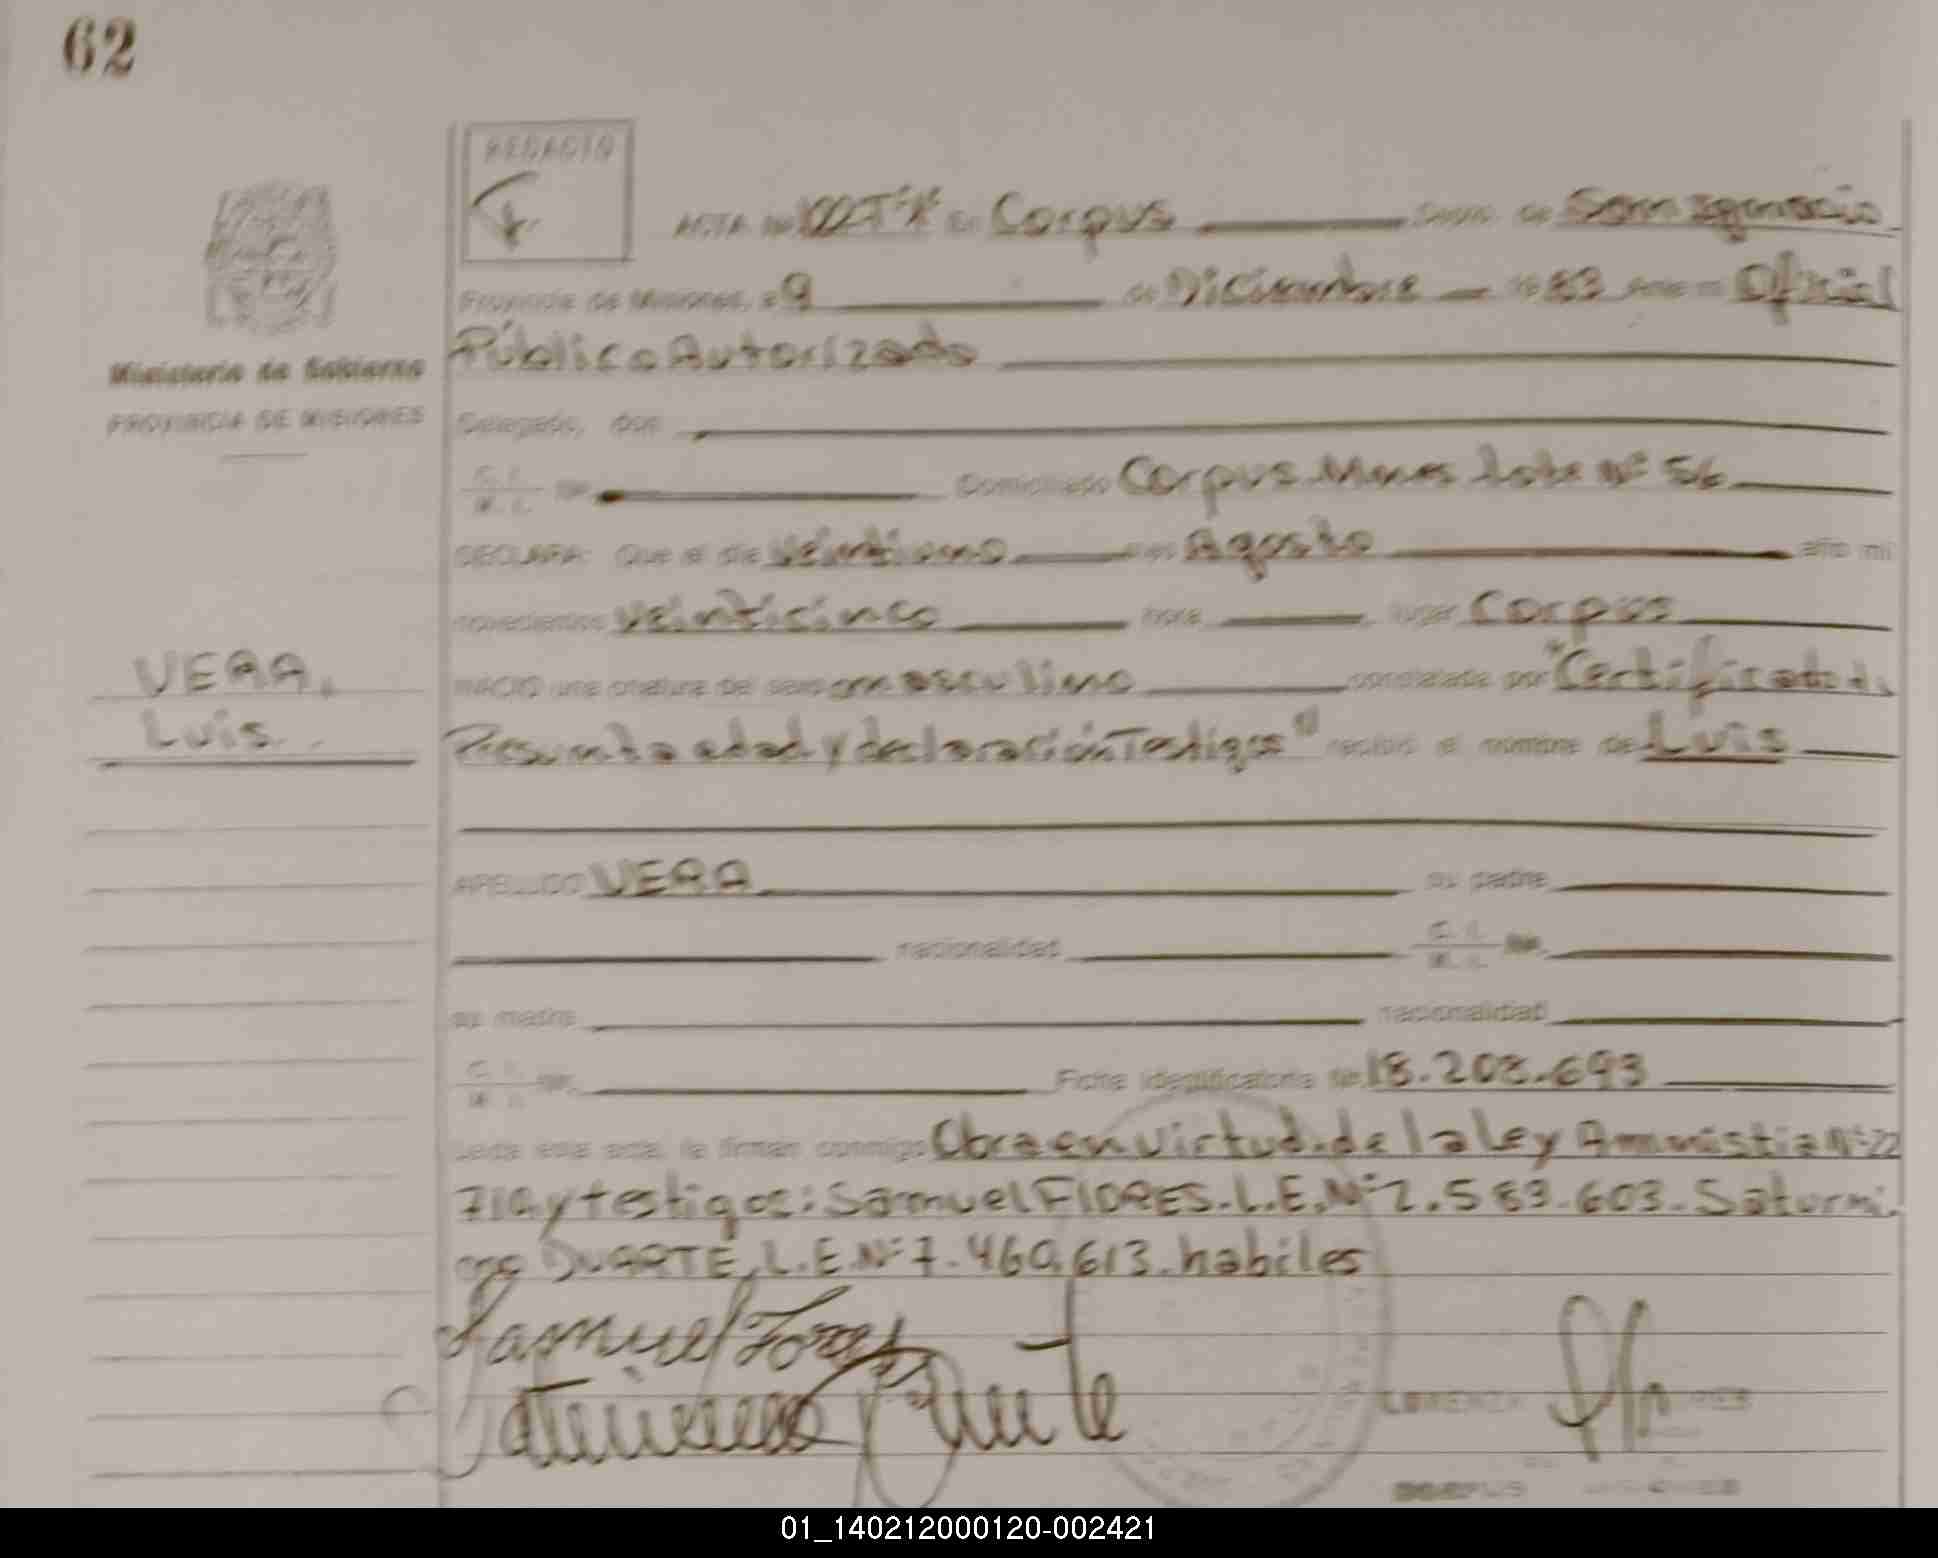 62
REDACTO
ACTA Nº En Corpus Depto. de San Ignacio
Provincia de Misiones, a 9 de Diciembre 1983 Ante mi Oficial
Público Autorizado
Delegado, don
C. I.
M. I. Nº Domiciliado Corpus Mnes lote Nº 56
DECLARA: Que el día veintiuno mes Agosto año mil
novecientos veinticinco hora lugar Corpus
NACIO una criatura del sexo masculino constatada por "Certificado d.
Presunta edad y declaración Testigos" recibió el nombre de Luis
APELLIDO VERA su padre
nacionalidad C. I.
M. I. Nº
su madre nacionalidad
C. I.
M. I. Nº Ficha identificatoria Nº 18.208.693
Leida esta acta, la firman conmigo Obra en virtud de la Ley Amnistia Nº 22
710 y testigos: Samuel FLORES. L.E. Nº 2.583.603. Saturni.
no DUARTE, L.E. Nº 7.460.613. habiles
Samuel Flores
Saturnino Duarte
LORENZA
CORPUS
Ministerio de Gobierno
PROVINCIA DE MISIONES
VERA,
Luis.
01_140212000120-002421